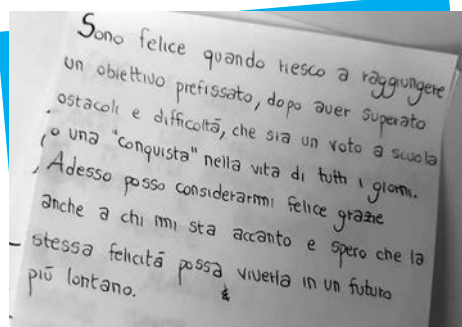 Sono felice quando riesco a raggiungere
un obiettivo prefissato, dopo aver superato
ostacoli e difficoltà, che sia un voto a scuola
o una "conquista" nella vita di tutti i giorni.
Adesso posso considerarmi felice grazie
anche a chi mi sta accanto e spero che la
stessa felicità possa viverla in un futuro
più lontano.